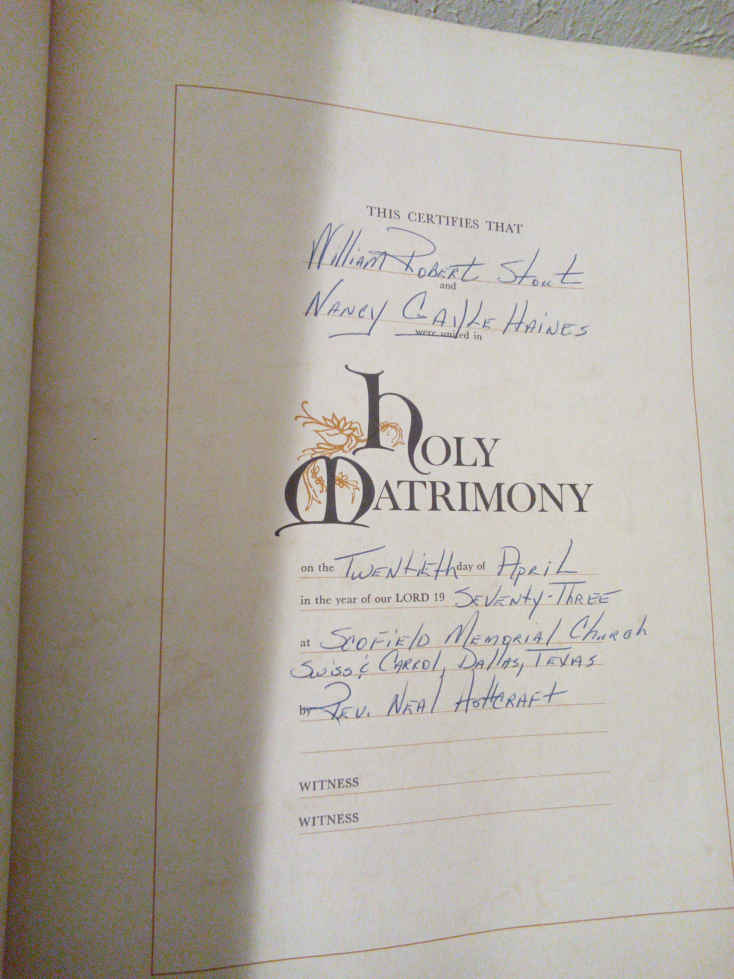 THIS CERTIFIES THAT
William Robert Stout
and
Nancy Gayle Haines
were united in
HOLY
MATRIMONY
on the Twentieth day of April
in the year of our LORD 19 Seventy-Three
at Scofield Memorial Church
Swiss & Carrol, Dallas, Texas
by Rev. Neal
WITNESS
WITNESS